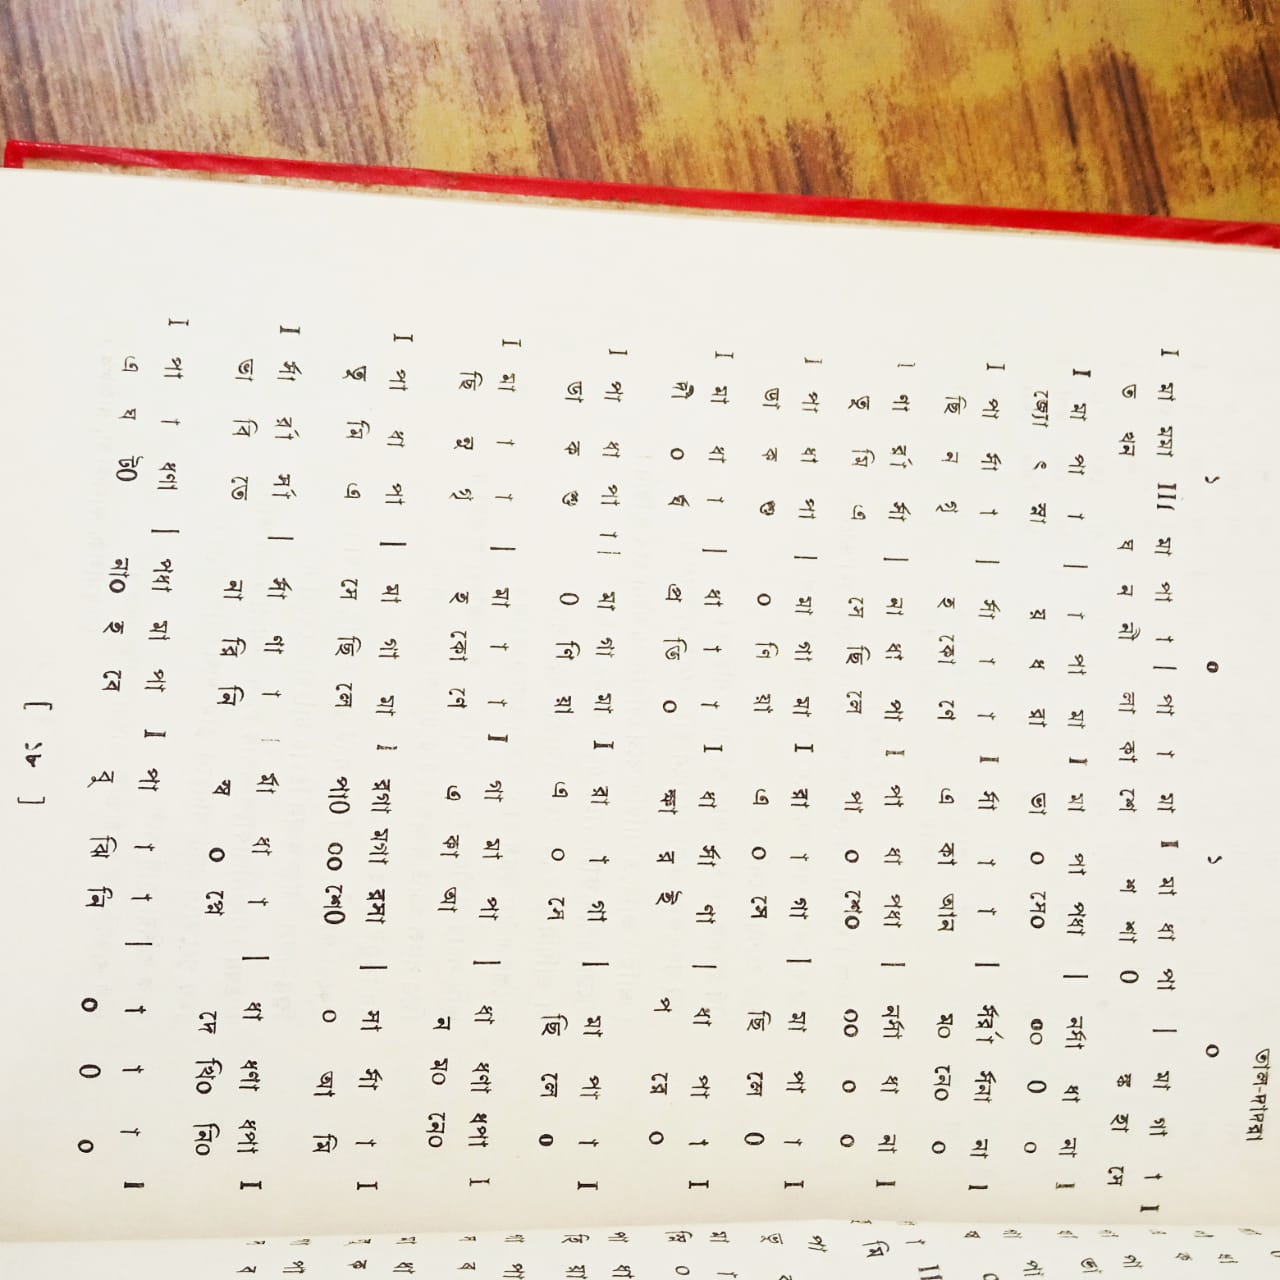 তাল-দাদরা
১ ০ ১ ০
I মা মমা III মা পা া | পা া মা I মা ধা পা | মা গা া I
ত খন ঘ ন নী লা কা শে শ শা ০ ঙ্ক হা সে
I মা পা া | া পা মা I মা পা পধা | নর্সা ধা না I
জ্যো ৎ স্না য় ধ রা ভা ০ সে০ ০০ ০ ০
I পা র্সা া | র্সা া া I র্সা া া | র্সর্রা র্সনা না I
ছি ল গৃ হ কো ণে এ কা আন ম০ নে০ ০
| পা র্রা র্সা | না ধা পা I পা ধা পধা | নর্সা ধা না I
তু মি এ সে ছি লে পা ০ শে০ ০০ ০ ০
| পা ধা পা | মা গা মা I রা া গা | মা পা া I
ভা ক ঙ্গু ০ লি য়া এ ০ সে ছি লে ০
I মা ধা া | ধা া া I ধা র্সা ণা | ধা পা া I
দী ০ র্ঘ প্র তি ০ ক্ষা র ই প রে ০
I পা ধা পা া| মা গা মা I রা া গা | মা পা া I
ভা ক ঙ্গু ০ লি য়া এ ০ সে ছি লে ০
I মা া া | মা া া I গা মা পা | ধা ধণা ধপা I
ছি নু গৃ হ কো ণে এ কা আ ন ম০ নে০
I পা ধা পা | মা গা মা | রগা মগা রসা | সা র্সা া I
তু মি এ সে ছি লে পা০ ০০ শে০ ০ আ মি
I র্সা র্রা র্সা | র্সা ণা া | র্সা ধা া | ধা ধণা ধপা I
ভা বি তে না রি নি স্ব ০ প্নে দে খি০ নি০
I পা া ধণা | পধা মা পা I পা া া | া া া I
এ ঘ ট০ না০ হ বে বু ঝি নি ০ ০ ০
[ ১৮ ]